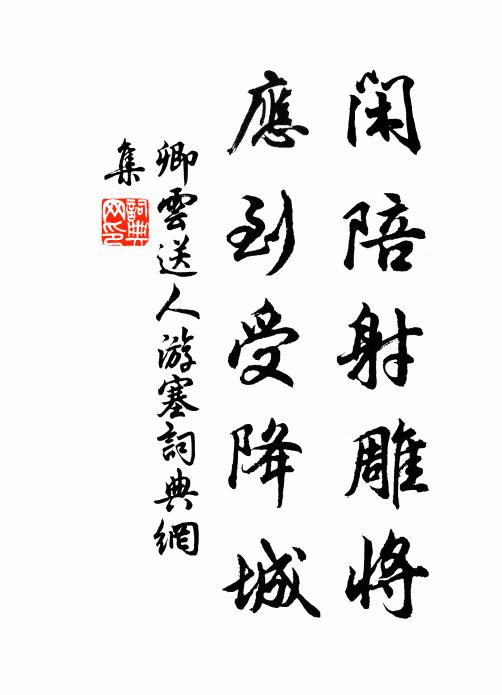 閑陪射雕將
應到受降城
卿雲送人游塞詞典網
集
詞典网印